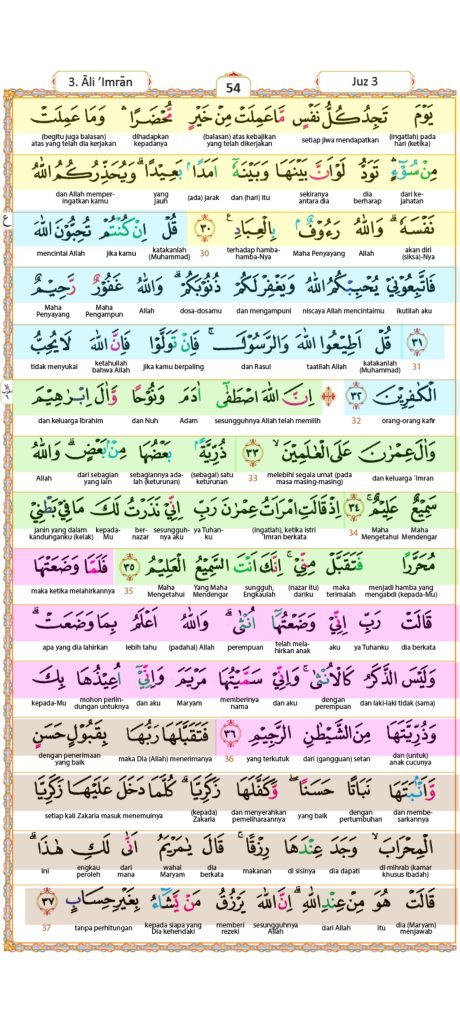 3. Āli ’Imrān 54 Juz 3
يَوْمَ تَجِدُ كُلُّ نَفْسٍ مَّا عَمِلَتْ مِنْ خَيْرٍ مُّحْضَرًا ۛ وَمَا عَمِلَتْ
(ingatlah) pada hari (ketika) setiap jiwa mendapatkan (balasan) atas kebajikan yang telah dikerjakan dihadapkan kepadanya (begitu juga balasan) atas yang telah dia kerjakan
مِنْ سُوْۤءٍ ۛ تَوَدُّ لَوْ اَنَّ بَيْنَهَا وَبَيْنَهٗٓ اَمَدًاۢ بَعِيْدًا ۗ وَيُحَذِّرُكُمُ اللّٰهُ
dari ke-jahatan dia berharap sekiranya antara dia dan (hari) itu (ada) jarak yang jauh dan Allah memper-ingatkan kamu
نَفْسَهٗ ۗ وَاللّٰهُ رَءُوْفٌۢ بِالْعِبَادِ ࣖ ٣٠ قُلْ اِنْ كُنْتُمْ تُحِبُّوْنَ اللّٰهَ
akan diri (siksa)-Nya Allah Maha Penyayang terhadap hamba-hamba-Nya 30 katakanlah (Muhammad) jika kamu mencintai Allah
فَاتَّبِعُوْنِيْ يُحْبِبْكُمُ اللّٰهُ وَيَغْفِرْ لَكُمْ ذُنُوْبَكُمْ ۗ وَاللّٰهُ غَفُوْرٌ رَّحِيْمٌ
ikutilah aku niscaya Allah mencintaimu dan mengampuni dosa-dosamu dan Allah Maha Pengampun Maha Penyayang
٣١ قُلْ اَطِيْعُوا اللّٰهَ وَالرَّسُوْلَ ۚ فَاِنْ تَوَلَّوْا فَاِنَّ اللّٰهَ لَا يُحِبُّ
31 katakanlah (Muhammad) taatilah Allah dan Rasul jika kamu berpaling ketahuilah bahwa Allah tidak menyukai
الْكٰفِرِيْنَ ٣٢ ۞ اِنَّ اللّٰهَ اصْطَفٰىٓ اٰدَمَ وَنُوْحًا وَّاٰلَ اِبْرٰهِيْمَ
orang-orang kafir 32 sesungguhnya Allah telah memilih Adam dan Nuh dan keluarga Ibrahim
وَاٰلَ عِمْرٰنَ عَلَى الْعٰلَمِيْنَ ۙ ٣٣ ذُرِّيَّةً ۢ بَعْضُهَا مِنْۢ بَعْضٍ ۗ وَاللّٰهُ
dan keluarga ‘Imran melebihi segala umat (pada masa masing-masing) 33 (sebagai) satu keturunan sebagiannya ada-lah (keturunan) dari sebagian yang lain Allah
سَمِيْعٌ عَلِيْمٌ ۚ ٣٤ اِذْ قَالَتِ امْرَاَتُ عِمْرٰنَ رَبِّ اِنِّيْ نَذَرْتُ لَكَ مَا فِيْ بَطْنِيْ
Maha Mendengar Maha Mengetahui 34 (ingatlah), ketika istri Imran berkata ya Tuhan-ku sesungguh-nya aku ber-nazar kepada-Mu janin yang dalam kandunganku (kelak)
مُحَرَّرًا فَتَقَبَّلْ مِنِّيْ ۚ اِنَّكَ اَنْتَ السَّمِيْعُ الْعَلِيْمُ ٣٥ فَلَمَّا وَضَعَتْهَا
menjadi hamba yang mengabdi (kepada-Mu) maka terimalah (nazar itu) dariku sungguh, Engkaulah Yang Maha Mendengar Maha Mengetahui 35 maka ketika melahirkannya
قَالَتْ رَبِّ اِنِّيْ وَضَعْتُهَآ اُنْثٰى ۗ وَاللّٰهُ اَعْلَمُ بِمَا وَضَعَتْ ۗ
dia berkata ya Tuhanku aku telah mela-hirkan anak perempuan (padahal) Allah lebih tahu apa yang dia lahirkan
وَلَيْسَ الذَّكَرُ كَالْاُنْثٰى ۚ وَاِنِّيْ سَمَّيْتُهَا مَرْيَمَ وَاِنِّيْٓ اُعِيْذُهَا بِكَ
dan laki-laki tidak (sama) dengan perempuan dan aku memberinya nama Maryam dan aku mohon perlin-dungan untuknya kepada-Mu
وَذُرِّيَّتَهَا مِنَ الشَّيْطٰنِ الرَّجِيْمِ ٣٦ فَتَقَبَّلَهَا رَبُّهَا بِقَبُوْلٍ حَسَنٍ
dan (untuk) anak cucunya dari (gangguan) setan yang terkutuk 36 maka Dia (Allah) menerimanya dengan penerimaan yang baik
وَّاَنْۢبَتَهَا نَبَاتًا حَسَنًا ۖ وَّكَفَّلَهَا زَكَرِيَّا ۗ كُلَّمَا دَخَلَ عَلَيْهَا زَكَرِيَّا
dan membe-sarkannya dengan pertumbuhan yang baik dan menyerahkan pemeliharaannya (kepada) Zakaria setiap kali Zakaria masuk menemuinya
الْمِحْرَابَ ۙ وَجَدَ عِنْدَهَا رِزْقًا ۚ قَالَ يٰمَرْيَمُ اَنّٰى لَكِ هٰذَا ۗ
di mihrab (kamar khusus ibadah) dia dapati di sisinya makanan dia berkata wahai Maryam dari mana engkau peroleh ini
قَالَتْ هُوَ مِنْ عِنْدِ اللّٰهِ ۗ اِنَّ اللّٰهَ يَرْزُقُ مَنْ يَّشَاۤءُ بِغَيْرِ حِسَابٍ ٣٧
dia (Maryam) menjawab itu dari Allah sesungguhnya Allah memberi rezeki kepada siapa yang Dia kehendaki tanpa perhitungan 37